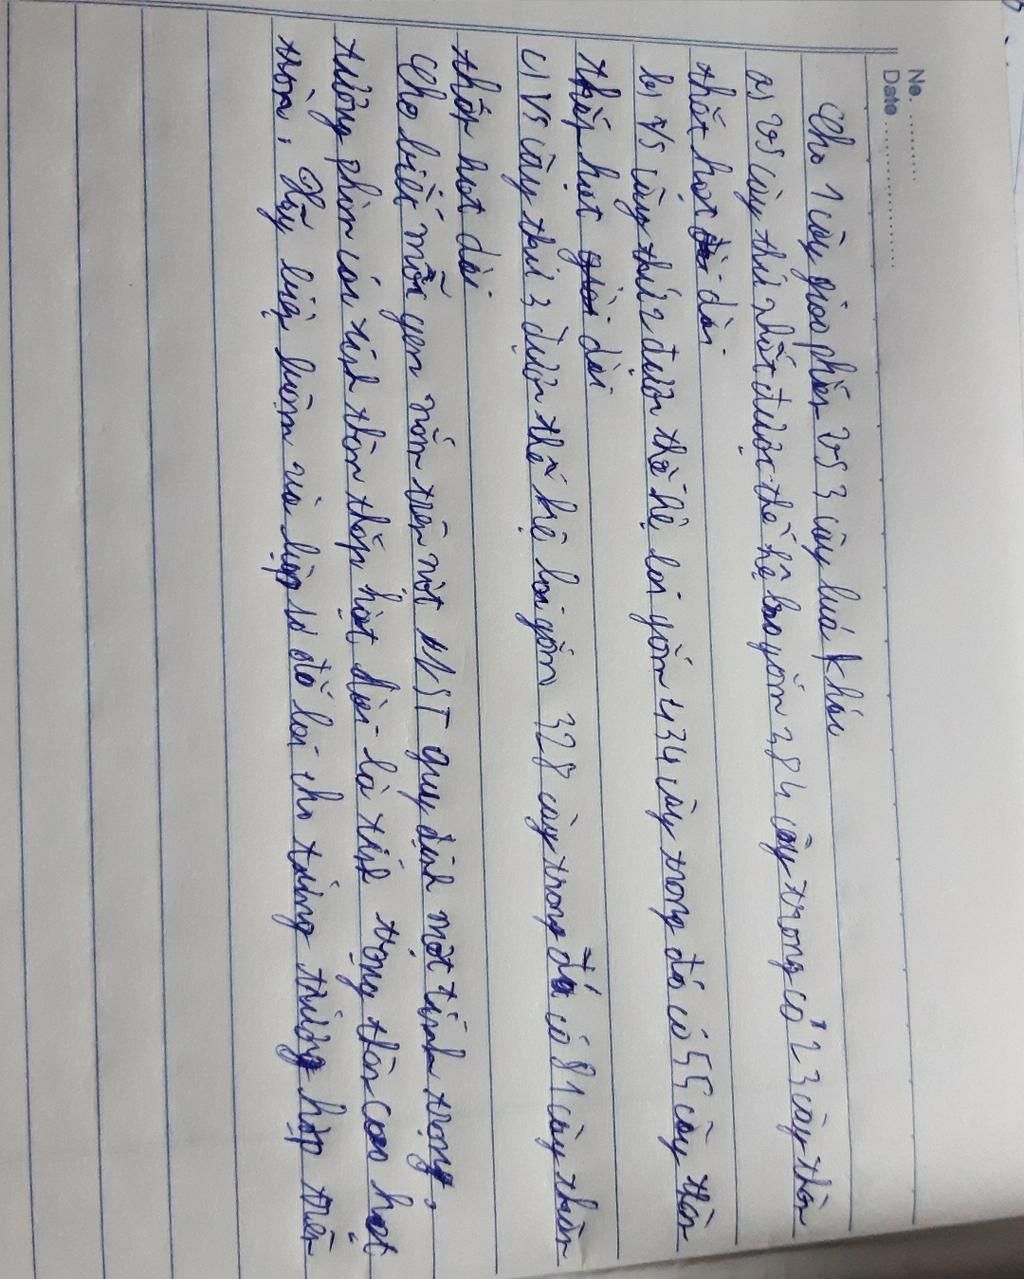 No. ........
Date ....................
Cho 1 cây giao phấn vs 3 cây lúa khác
a) vs cây thứ nhất được thế hệ bao gồm 384 cây trong có 23 cây thân
thất hạt dài
b) vs cây thứ 2 được thế hệ lai gồm 434 cây trong đó có 55 cây thân
thấp hạt dài
c) vs cây thứ 3 được thế hệ lai gồm 328 cây trong đó có 81 cây thân
thấp hạt dài
Cho biết mỗi gen nằm trên một NST quy định một tính trạng,
tương phản với tính thân thấp hạt dài là tính trạng thân cao hạt
tròn. Hãy biện luận và lập sơ đồ lai cho từng trường hợp trên